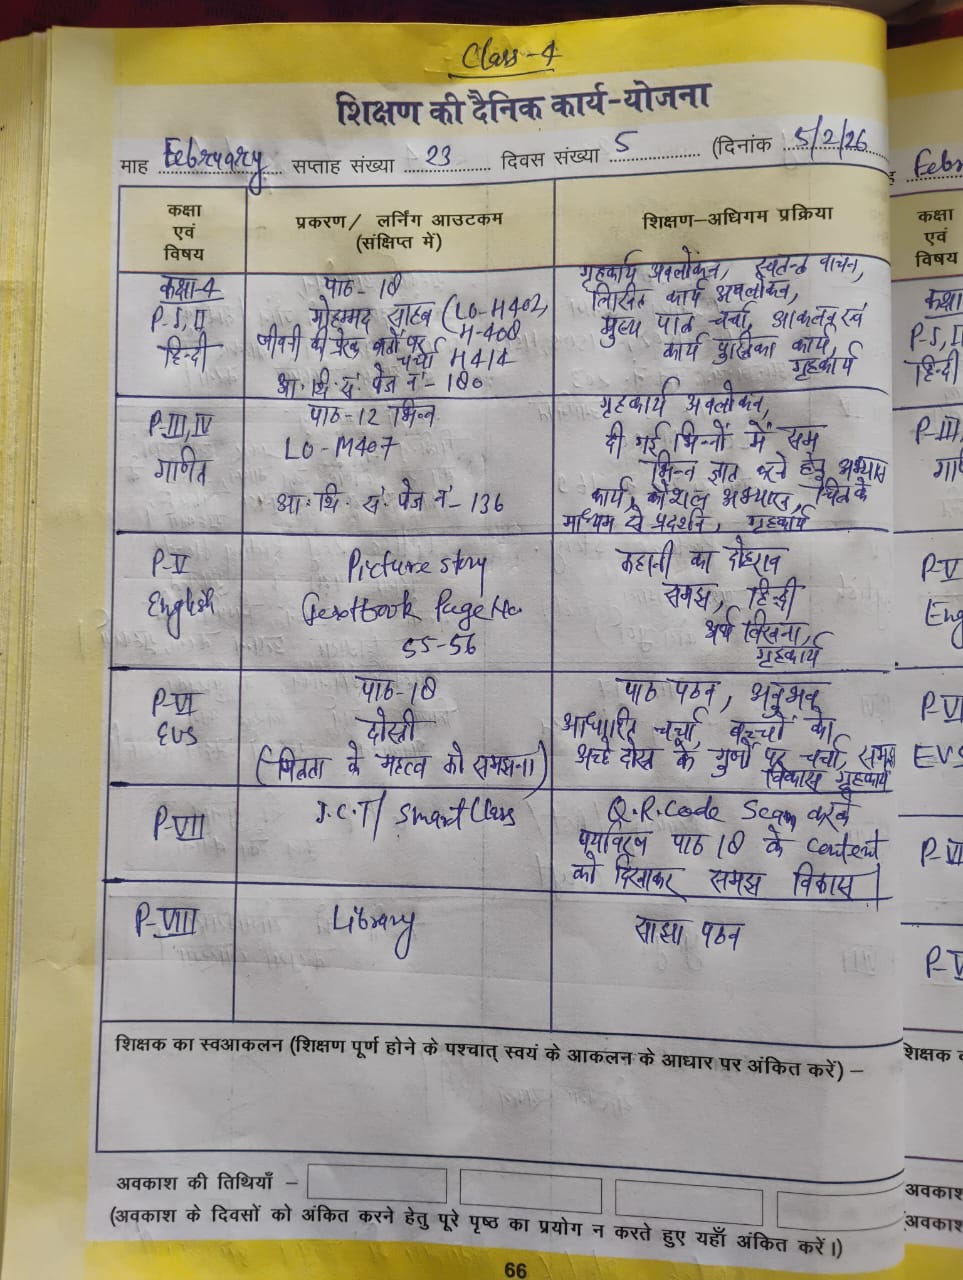 Class-4
शिक्षण की दैनिक कार्य-योजना
माह February सप्ताह संख्या 23 दिवस संख्या 5 (दिनांक 5/2/26
कक्षा
एवं
विषय
प्रकरण/ लर्निंग आउटकम
(संक्षिप्त में)
शिक्षण-अधिगम प्रक्रिया
कक्षा-4
P-I, II
हिन्दी
पाठ-18
मोहम्मद साहब (LO-H402,
H-408
जीवनी के प्रेरक बातों पर
चर्चा H414
आ. शि. सं. पेज नं- 180
गृहकार्य अवलोकन, स्वतन्त्र वाचन,
लिखित कार्य अवलोकन,
मुख्य पाठ चर्चा, आकलन एवं
कार्य पुस्तिका कार्य,
गृहकार्य
P-III, IV
गणित
पाठ-12 भिन्न
LO-M407
आ. शि. सं. पेज नं- 136
गृहकार्य अवलोकन,
दी गई भिन्नों में सम
भिन्न ज्ञात करने हेतु अभ्यास
कार्य, कौशल अभ्यास, चित्र के
माध्यम से प्रदर्शन, गृहकार्य
P-V
English
Picture story
Textbook Page No
55-56
कहानी का दोहराव
समझ, हिन्दी
अर्थ लिखना,
गृहकार्य
P-VI
EVS
पाठ-18
दोस्ती
(मित्रता के महत्व को समझना)
पाठ पठन, अनुभव
आधारित चर्चा, बच्चों का
अच्छे दोस्त के गुणों पर चर्चा, समझ
विकास गृहकार्य
P-VII
I.C.T/ Smart Class
Q.R.Code Scan करके
पर्यावरण पाठ 18 के content
को दिखाकर समझ विकास।
P-VIII
Library
साझा पठन
शिक्षक का स्वआकलन (शिक्षण पूर्ण होने के पश्चात् स्वयं के आकलन के आधार पर अंकित करें) –
अवकाश की तिथियाँ –
(अवकाश के दिवसों को अंकित करने हेतु पूरे पृष्ठ का प्रयोग न करते हुए यहाँ अंकित करें।)
66
Febr
कक्षा
एवं
विषय
कक्षा
P-I, I
हिन्दी
P-III,
P-V
Eng
P-VI
EVS
P-V
शिक्षक
अवकाश
(अवकाश